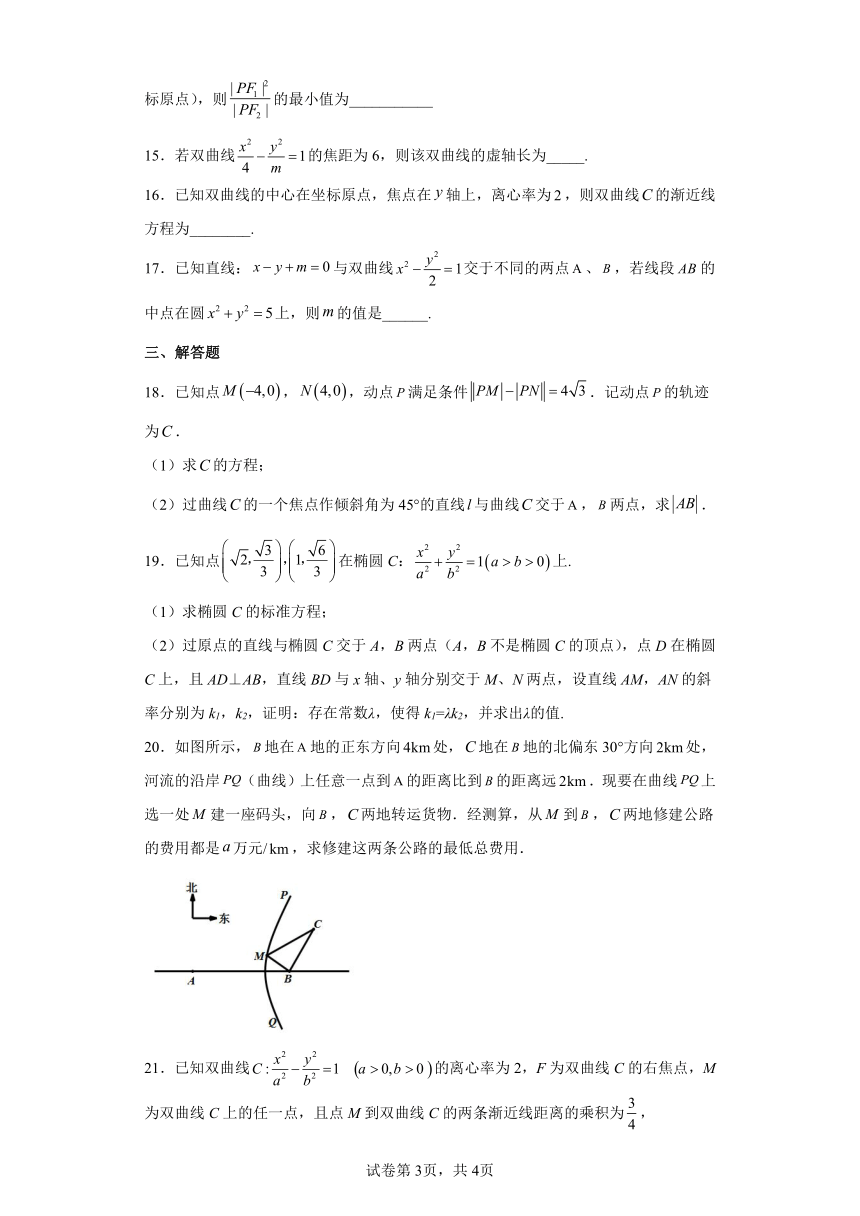 标原点），则 |PF₁|²/|PF₂| 的最小值为___________
15．若双曲线 x²/4 − y²/m = 1 的焦距为 6，则该双曲线的虚轴长为_____.
16．已知双曲线的中心在坐标原点，焦点在 y 轴上，离心率为 2，则双曲线 C 的渐近线
方程为________.
17．已知直线：x − y + m = 0 与双曲线 x² − y²/2 = 1 交于不同的两点 A、B，若线段 AB 的
中点在圆 x² + y² = 5 上，则 m 的值是______.
三、解答题
18．已知点 M(−4,0)，N(4,0)，动点 P 满足条件 ||PM| − |PN|| = 4√3．记动点 P 的轨迹
为 C．
（1）求 C 的方程；
（2）过曲线 C 的一个焦点作倾斜角为 45°的直线 l 与曲线 C 交于 A，B 两点，求 |AB|．
19．已知点 (√2, √3/3), (1, √6/3) 在椭圆 C：x²/a² + y²/b² = 1(a > b > 0) 上.
（1）求椭圆 C 的标准方程；
（2）过原点的直线与椭圆 C 交于 A，B 两点（A，B 不是椭圆 C 的顶点），点 D 在椭圆
C 上，且 AD⊥AB，直线 BD 与 x 轴、y 轴分别交于 M、N 两点，设直线 AM，AN 的斜
率分别为 k₁，k₂，证明：存在常数λ，使得 k₁=λk₂，并求出λ的值.
20．如图所示，B 地在 A 地的正东方向 4km 处，C 地在 B 地的北偏东 30°方向 2km 处，
河流的沿岸 PQ（曲线）上任意一点到 A 的距离比到 B 的距离远 2km．现要在曲线 PQ 上
选一处 M 建一座码头，向 B，C 两地转运货物．经测算，从 M 到 B，C 两地修建公路
的费用都是 a 万元/km，求修建这两条公路的最低总费用．
北
P
东
C
M
A
B
Q
21．已知双曲线 C : x²/a² − y²/b² = 1 (a > 0, b > 0) 的离心率为 2，F 为双曲线 C 的右焦点，M
为双曲线 C 上的任一点，且点 M 到双曲线 C 的两条渐近线距离的乘积为 3/4，
试卷第 3页，共 4页